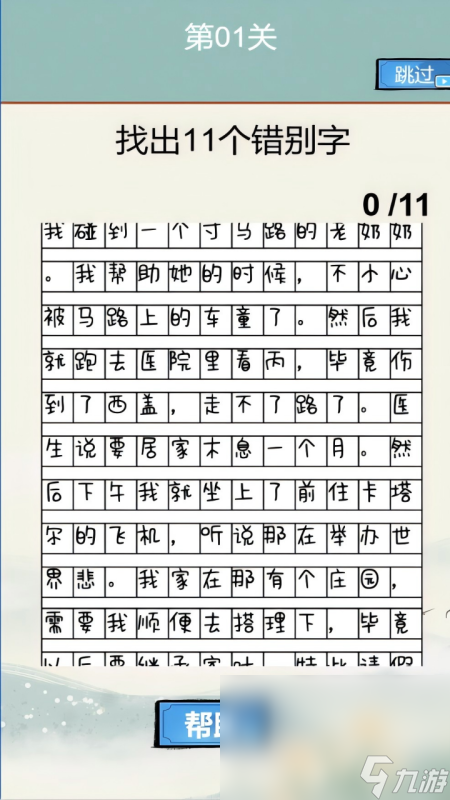 第01关
跳过
找出11个错别字
0 /11
我碰到一个寸马路的老奶奶
。我帮助她的时候，不小心
被马路上的车童了。然后我
就跑去医院里看丙，毕竟伤
到了西盖，走不了路了。医
生说要居家木息一个月。然
后下午我就坐上了前住卡塔
尔的飞机，听说那在举办世
界悲。我家在那有个庄园，
需要我顺便去搭理下，毕竟
以后要继承家叶，特此请假
帮
九游